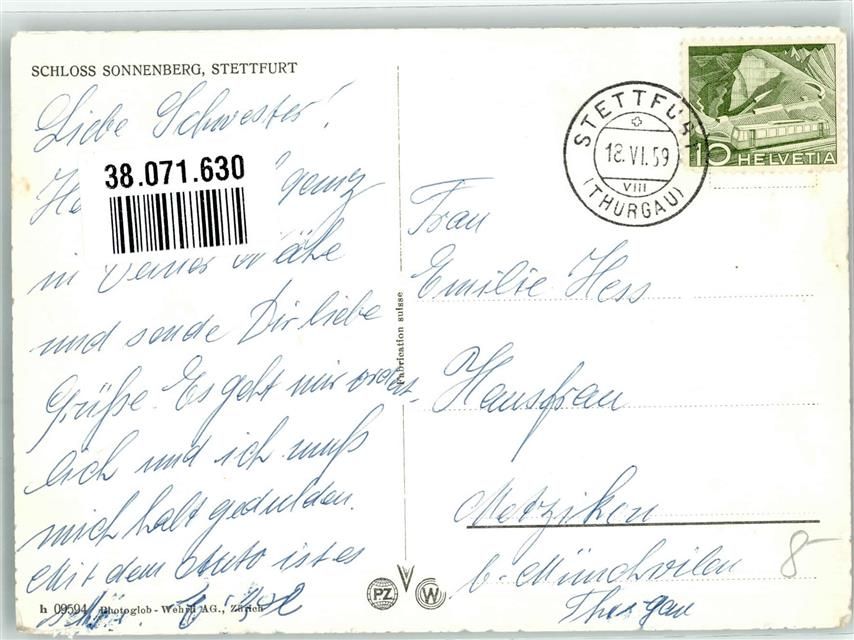 SCHLOSS SONNENBERG, STETTFURT
Liebe Schwester!
38.071.630
ganz
in Deiner Nähe
und sende Dir liebe
Grüße. Es geht mir ordent-
lich und ich muß
mich halt gedulden.
Mit dem Auto ist es
h 09594 Photoglob-Wehrli AG., Zürich
Fabrication suisse
PZ
W
STETTFURT
18.VI.59
VIII
(THURGAU)
10 HELVETIA
Frau
Emilie Hess
Hausfrau
Metzikon
b. Münchwilen
Thurgau
8-